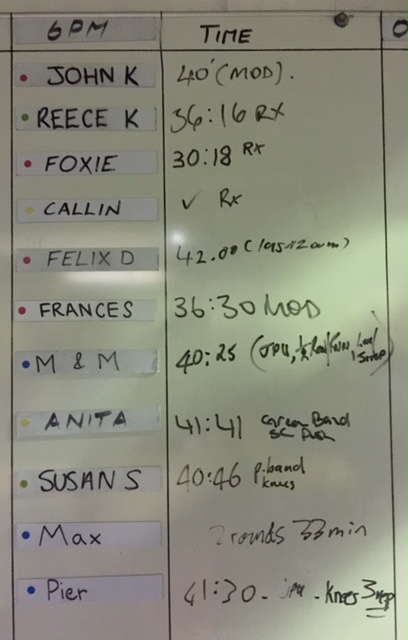 6PM TIME O
JOHN K 40' (MOD).
REECE K 36:16 RX
FOXIE 30:18 RX
CALLIN ✓ Rx
FELIX D 42.00
FRANCES 36:30 MOD
M & M 40:25
ANITA 41:41 Green Band
SUSAN S 40:46 P.band
knees
Max 2 rounds 33min
Pier 41:30 - - Knees